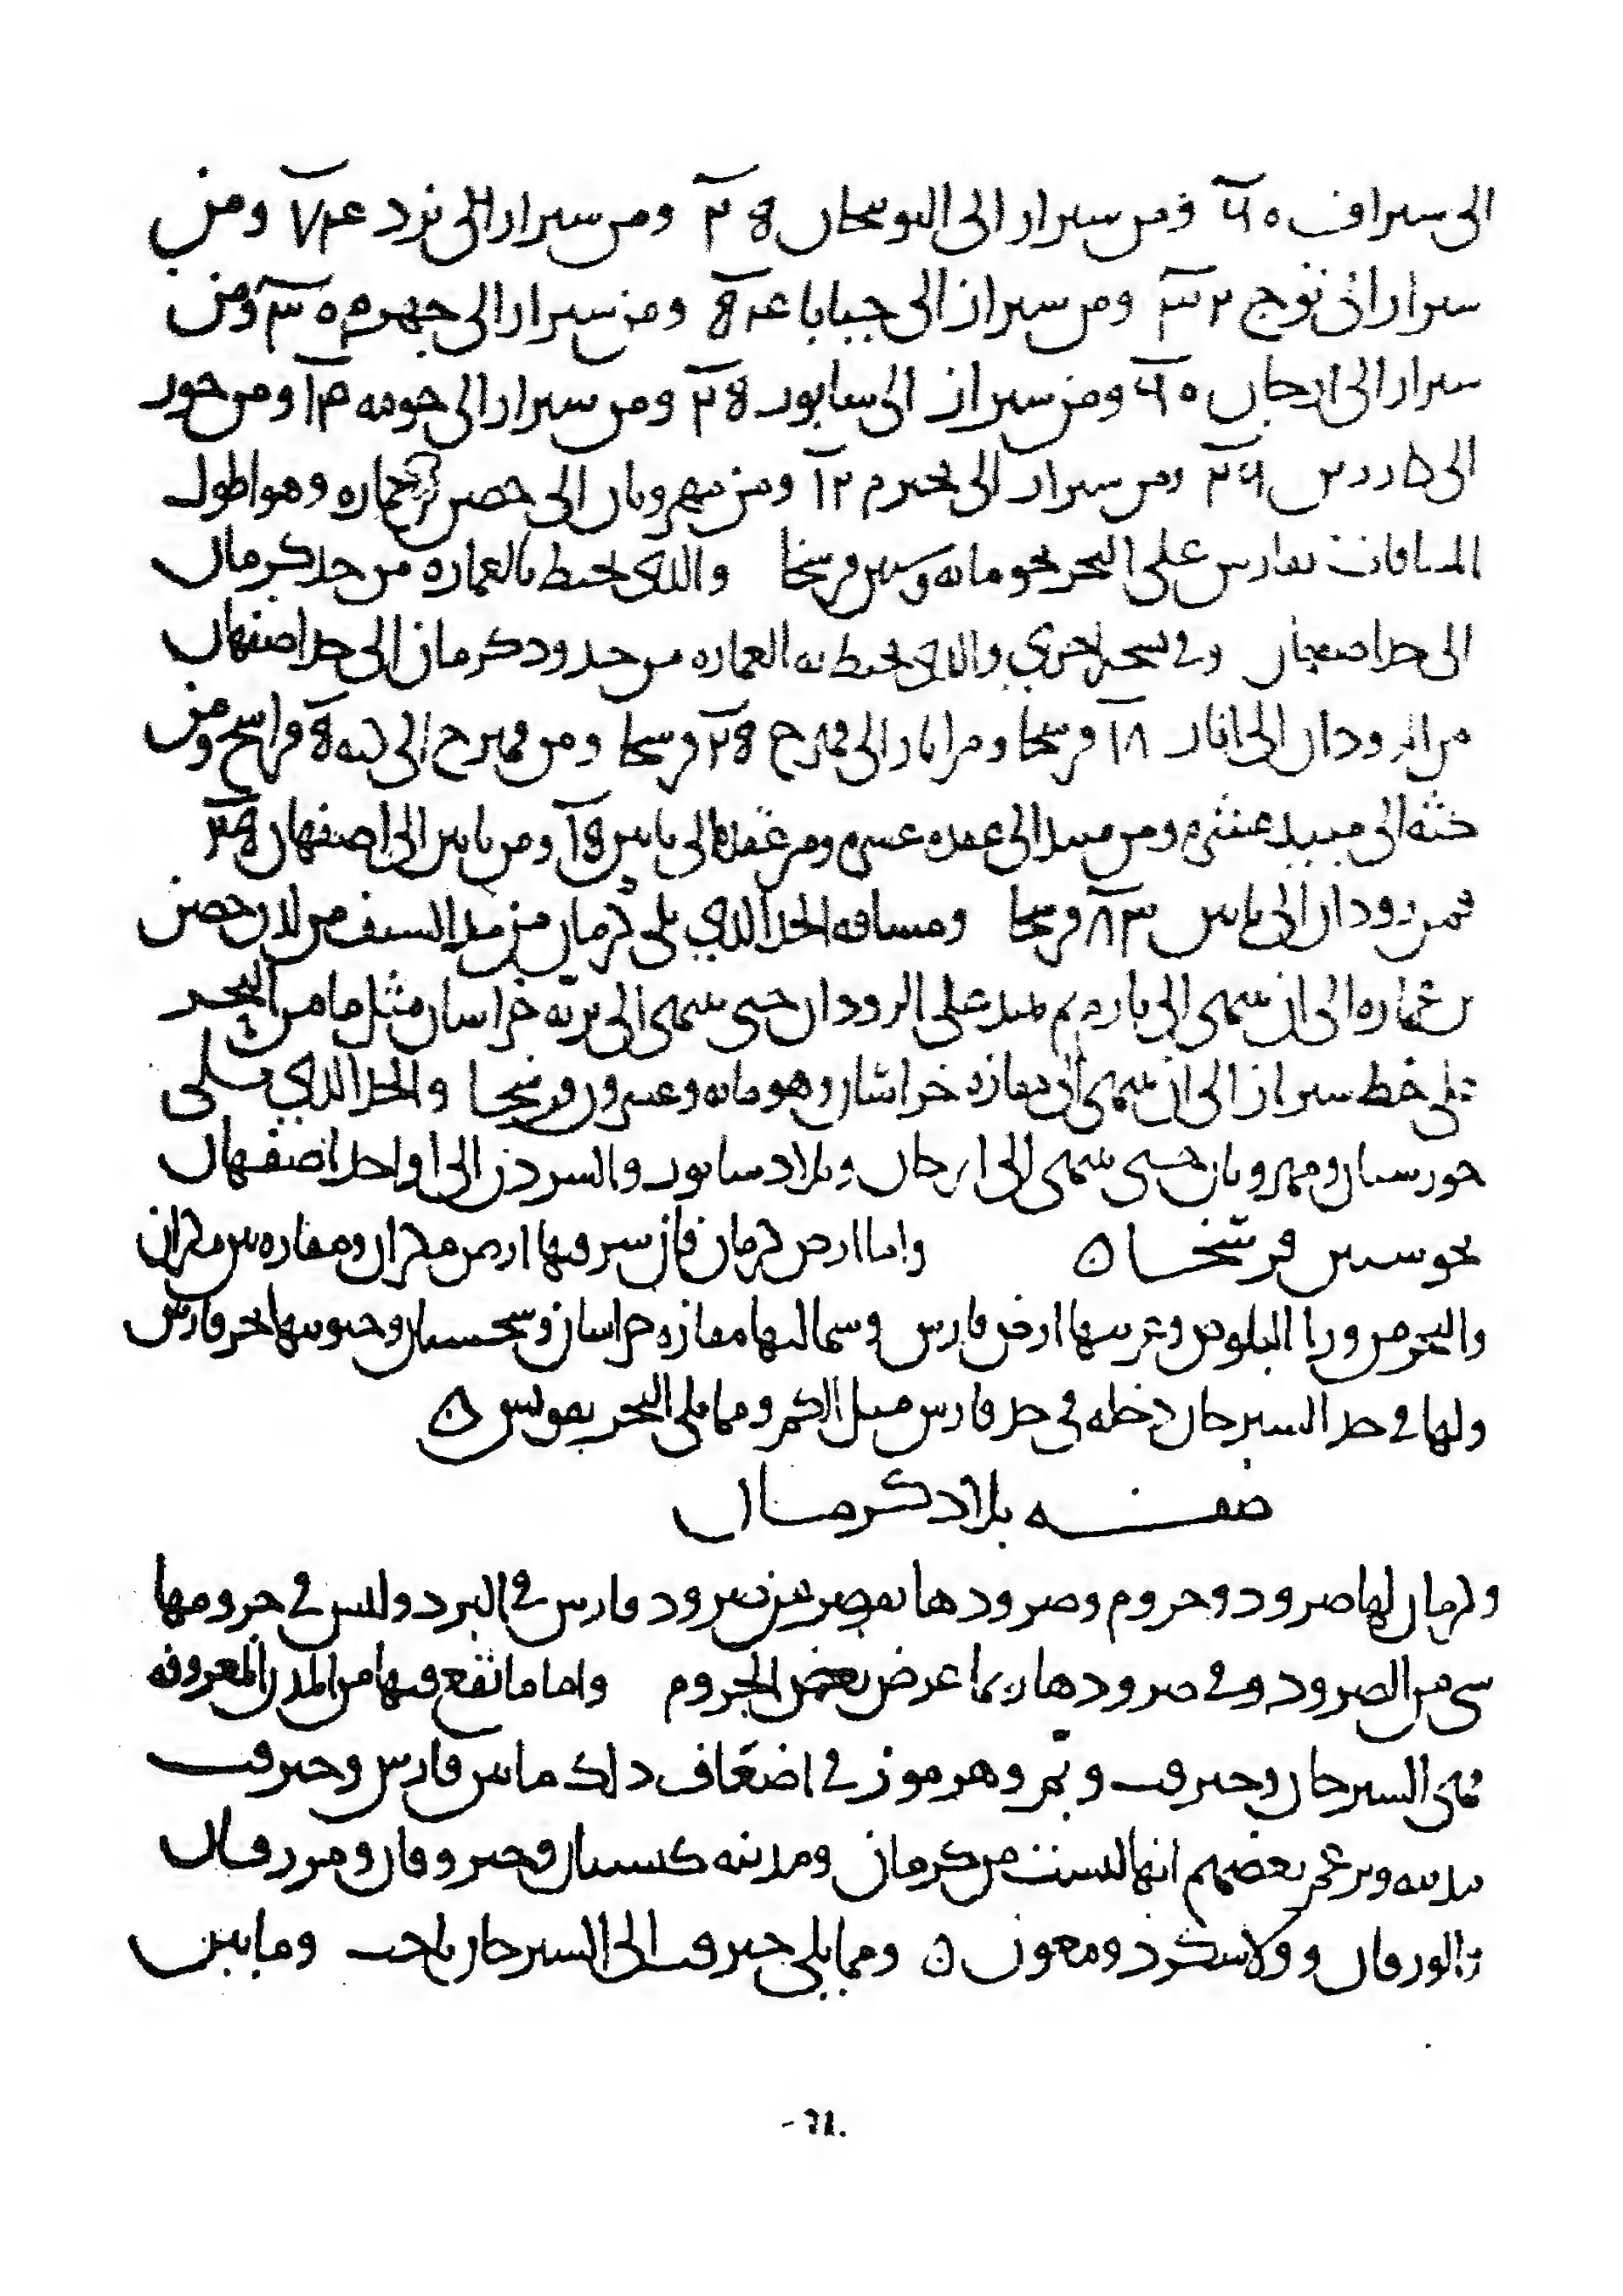 الى سيراف ٦٠ ومن سيراز الى النوبنجان ٢٥ ومن سيراز الى يزد ٧٤ ومن
سيراز الى توج ٣٢ ومن سيراز الى جنابا ومن سيراز الى جهرم ٣٠ ومن
سيراز الى ارجان ٦٠ ومن سيراز الى سابور ٢٥ ومن سيراز الى حومه ومن جور
الى كازرون ومن سيراز الى بحيرم ١٢ ومن مهروبان الى حصن بن عماره وهو اطول
المسافات بفارس على البحر نحو مائه وستين فرسخا والذي يحيط بالعماره من حد كرمان
الى حد اصفهان وفي نسخه اخرى والذي يحيط به العماره من حدود كرمان الى حد اصفهان
من الرودان الى انار ١٨ فرسخا ومن انار الى فهرج ٢٥ فرسخا ومن فهرج الى كثه ٥ فراسخ ومن
كثه الى ميبد عشره ومن ميبد الى عقده عشره ومن عقده الى نايين ١٥ ومن نايين الى اصفهان
فمن رودان الى نايين ٨٣ فرسخا ومسافه الحد الذي يلي كرمان من السيف من لدن حصن
بن عماره الى ان ينتهي الى تارم ثم يمتد على الرودان حتى ينتهي الى بريه خراسان مثل ما من البحر
على خط سيراز الى ان ينتهي الى مفازه خراسان وهو مائه وعشرون فرسخا والحد الذي يلي
خورستان ومهروبان حتى ينتهي الى ارجان وبلاد سابور والسردن الى اول حد اصفهان
نحو ستين فرسخا ٥ واما ارض كرمان فان شرقيها ارض مكران ومفازه بين مكران
والبحر من ورا البلوص وغربيها ارض فارس وشماليها مفازه خراسان وسجستان وجنوبيها بحر فارس
ولها في حد السيرجان دخله في حد فارس مثل الكم ومما يلي البحر تقويس ٥
صفه بلاد كرمان
وكرمان لها صرود وجروم وصرودها تقصر عن صرود فارس في البرد وليس في جرومها
شي من الصرود وفي صرودها ربما عرض بعض الجروم واما ما تقع فيها من المدن المعروفه
فهي السيرجان وجيرفت وبم وهرموز في اضعاف ذلك ما بين فارس وجيرفت
مدينه ويزعم بعضهم انها ليست من كرمان ومدينه كشستان وجيروقان ومرزقان
والورقان وولاشكرد ومغون ٥ ومما يلي جيرفت الى السيرجان ناجت وما بين
- ٦١.